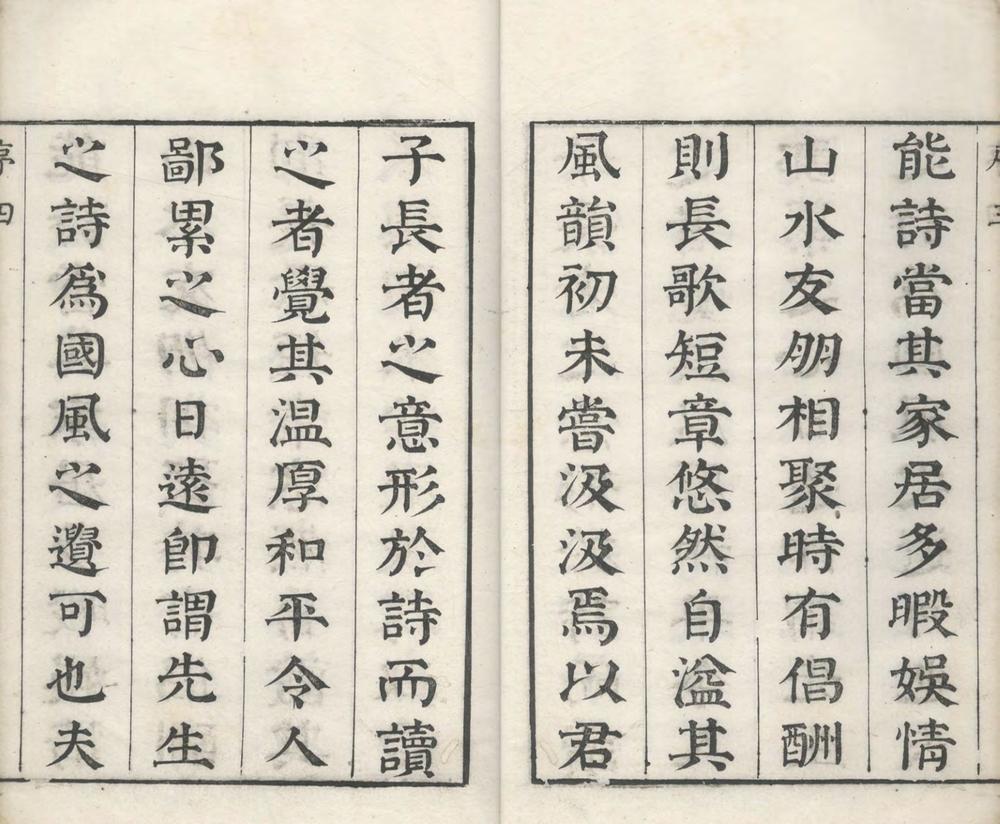 能詩當其家居多暇娯情
山水友朋相聚時有倡酬
則長歌短章悠然自溢其
風韻初未嘗汲汲焉以君
子長者之意形於詩而讀
之者覺其溫厚和平令人
鄙累之心日遠卽謂先生
之詩爲國風之遺可也夫
序四